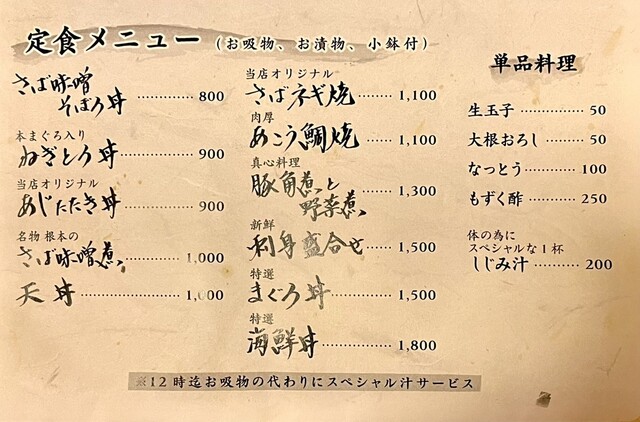 定食メニュー（お吸物、お漬物、小鉢付）
さば味噌
そぼろ丼 ………… 800
本まぐろ入り
ねぎとろ丼 ………… 900
当店オリジナル
あじたたき丼 ………… 900
名物 根本の
さば味噌煮 ………… 1,000
天丼 ………… 1,000
当店オリジナル
さばネギ焼 ……… 1,100
肉厚
あこう鯛焼 ……… 1,100
真心料理
豚角煮と
野菜煮 ……… 1,300
新鮮
刺身盛合せ ……… 1,500
特選
まぐろ丼 ………… 1,500
特選
海鮮丼 ………… 1,800
単品料理
生玉子 ………… 50
大根おろし ……… 50
なっとう ……… 100
もずく酢 ……… 250
体の為に
スペシャルな1杯
しじみ汁 ……… 200
※12時迄お吸物の代わりにスペシャル汁サービス